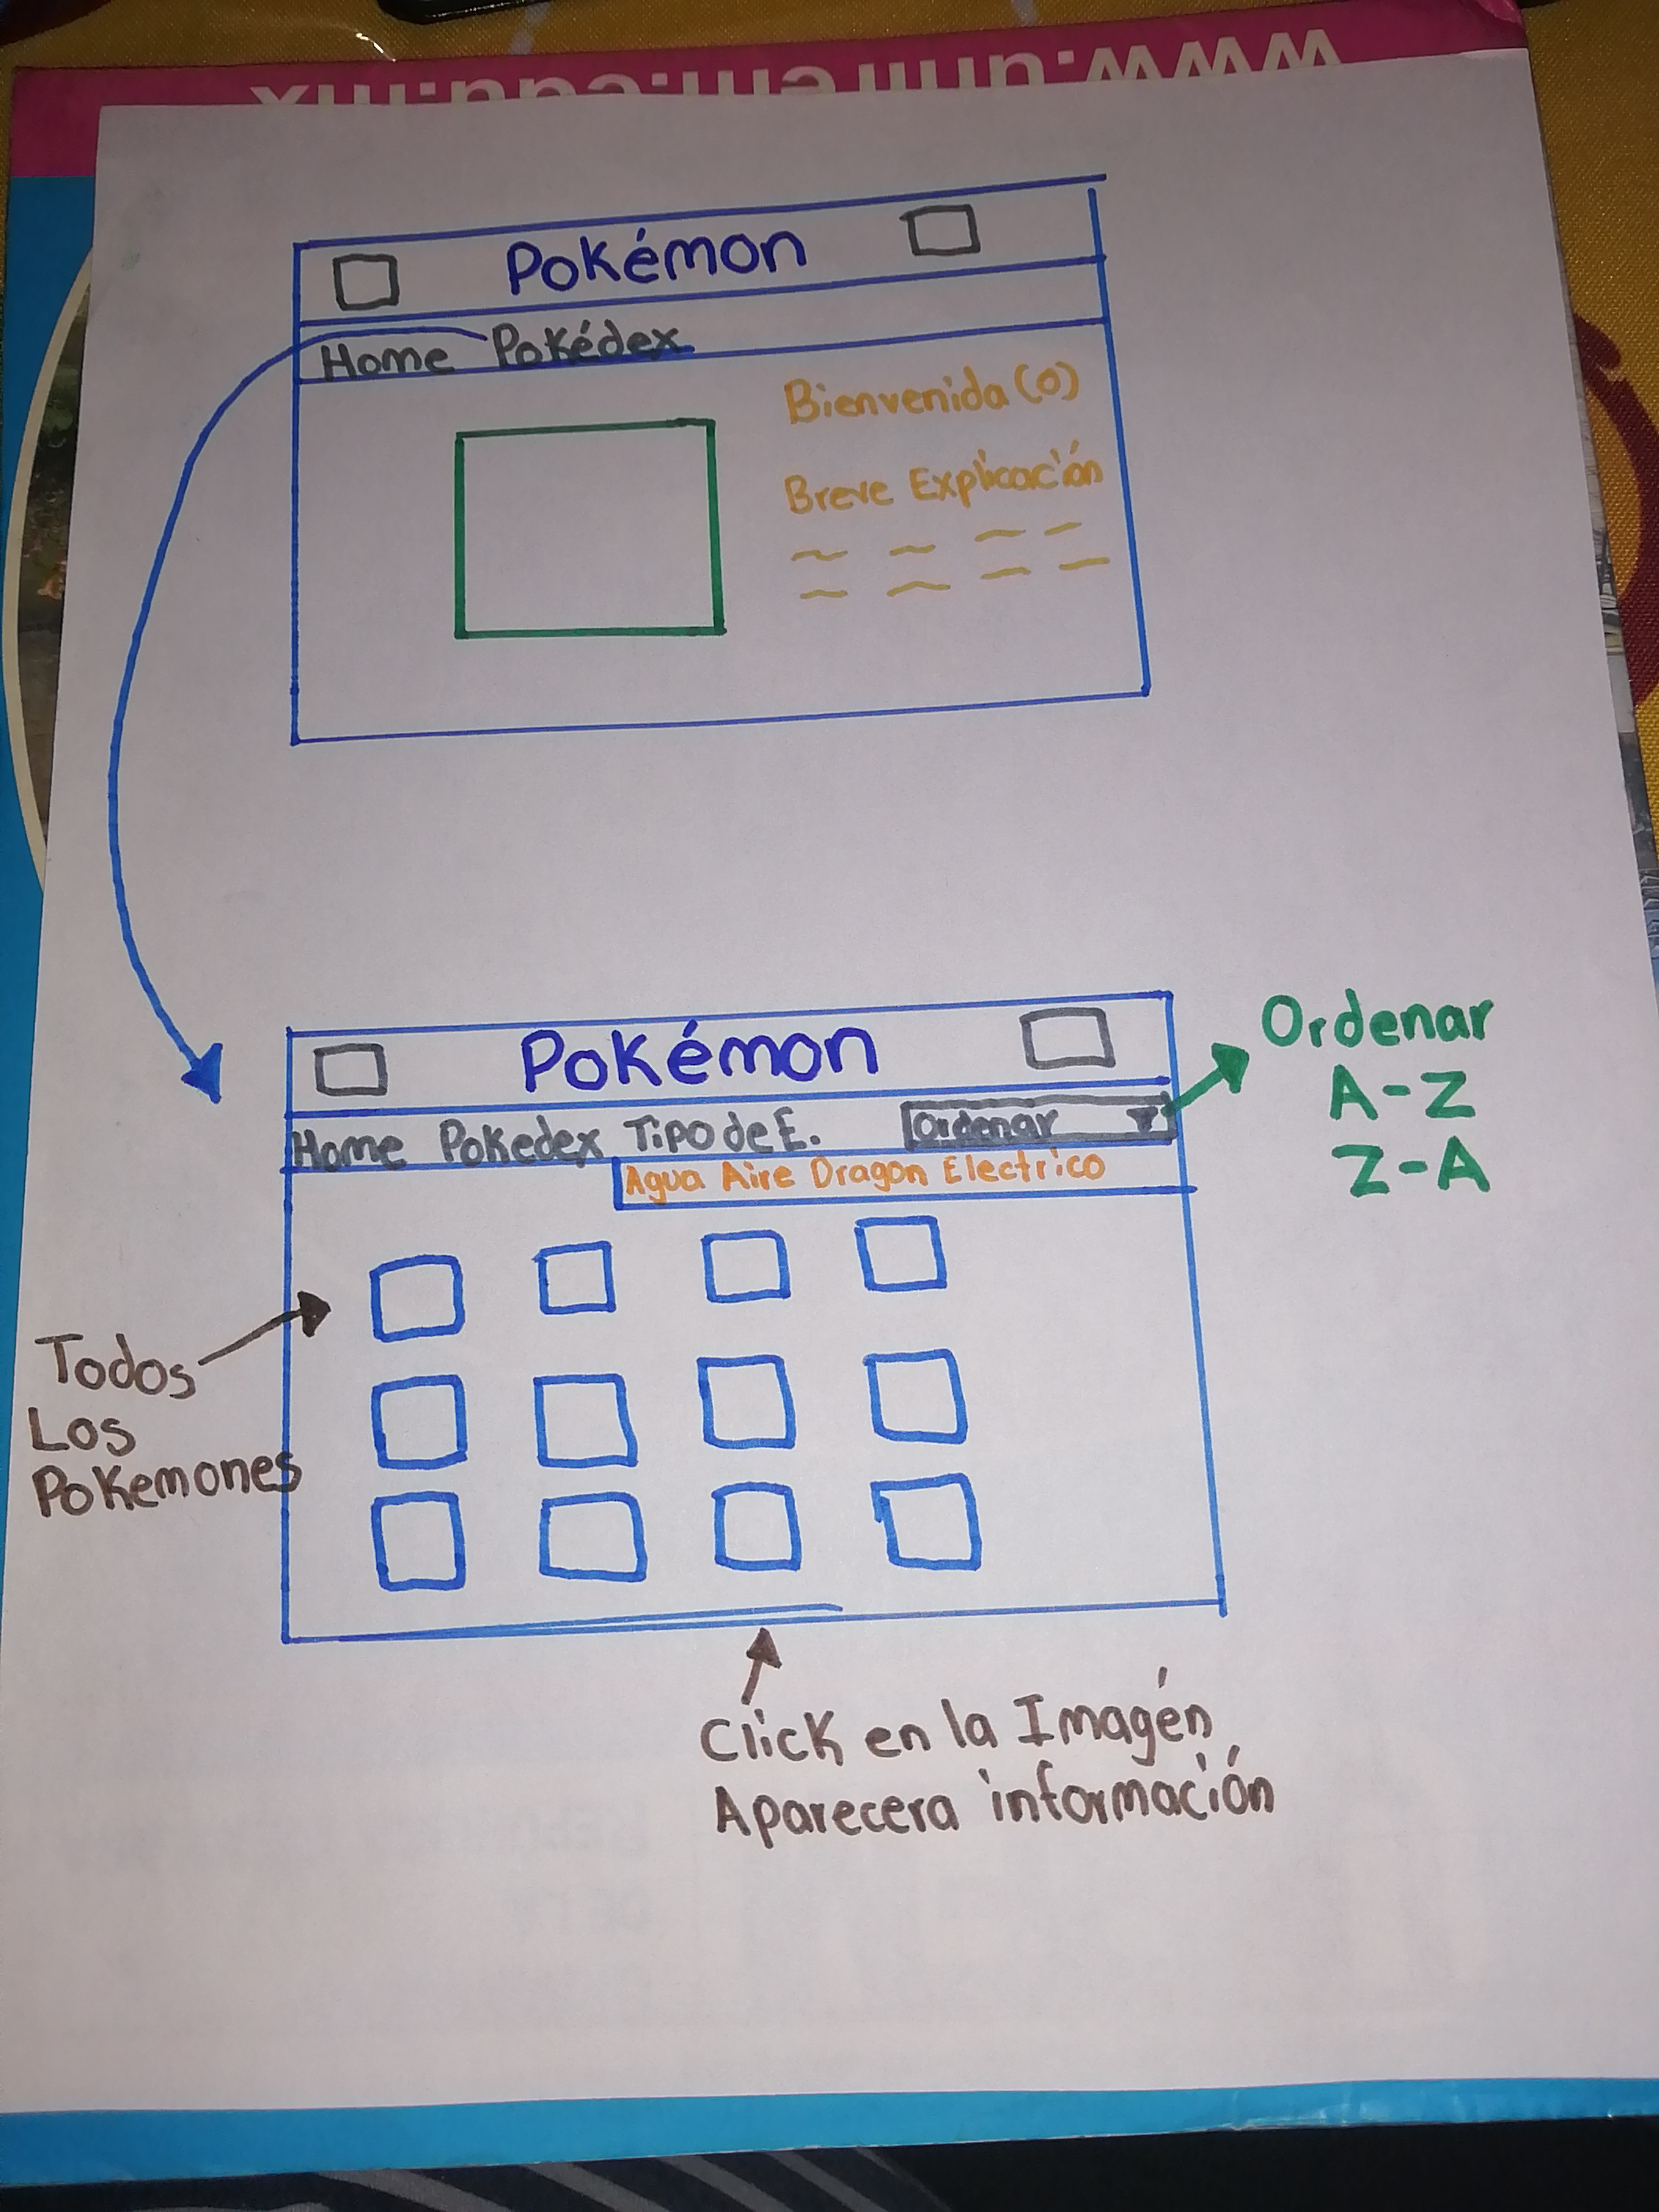 Pokémon
Home Pokédex
Bienvenida(o)
Breve Explicación
Pokémon
Home Pokedex Tipo de E. Ordenar
Agua Aire Dragon Electrico
Ordenar
A-Z
Z-A
Todos
Los
Pokemones
Click en la Imagén
Aparecera información